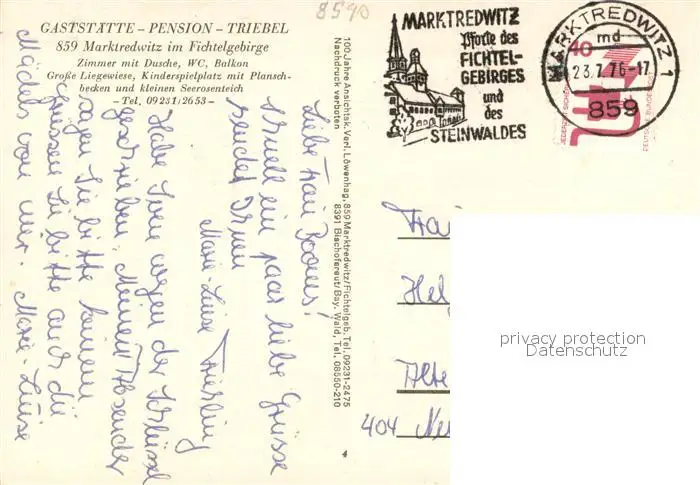 8590
GASTSTÄTTE - PENSION - TRIEBEL
859 Marktredwitz im Fichtelgebirge
Zimmer mit Dusche, WC, Balkon
Große Liegewiese, Kinderspielplatz mit Plansch-
becken und kleinen Seerosenteich
- Tel. 09231/2653 -
MARKTREDWITZ
Pforte des
FICHTEL-
GEBIRGES
und
des
STEINWALDES
MARKTREDWITZ 1
md
23.7.76-17
859
40
JEDERZEIT SICHERHEIT
DEUTSCHE BUNDESPOST
100-Jahre Ansichtsk.-Verl. Löwenhag, 859 Marktredwitz/Fichtelgeb. Tel. 09231-2475
Nachdruck verboten 8391 Bischofsreut/Bay. Wald, Tel. 08550-210
Liebe Frau Booms!
Schnell ein paar liebe Grüsse
sendet Ihnen
Marie-Luise
Habe Sven wegen der Schlüssel
geschrieben. Meinen Absender
sagen Sie bitte keinem
grüssen Sie bitte auch die
Mädels von mir. Marie-Luise
Frau
Hel
Alte
404 Neu
4
privacy protection
Datenschutz